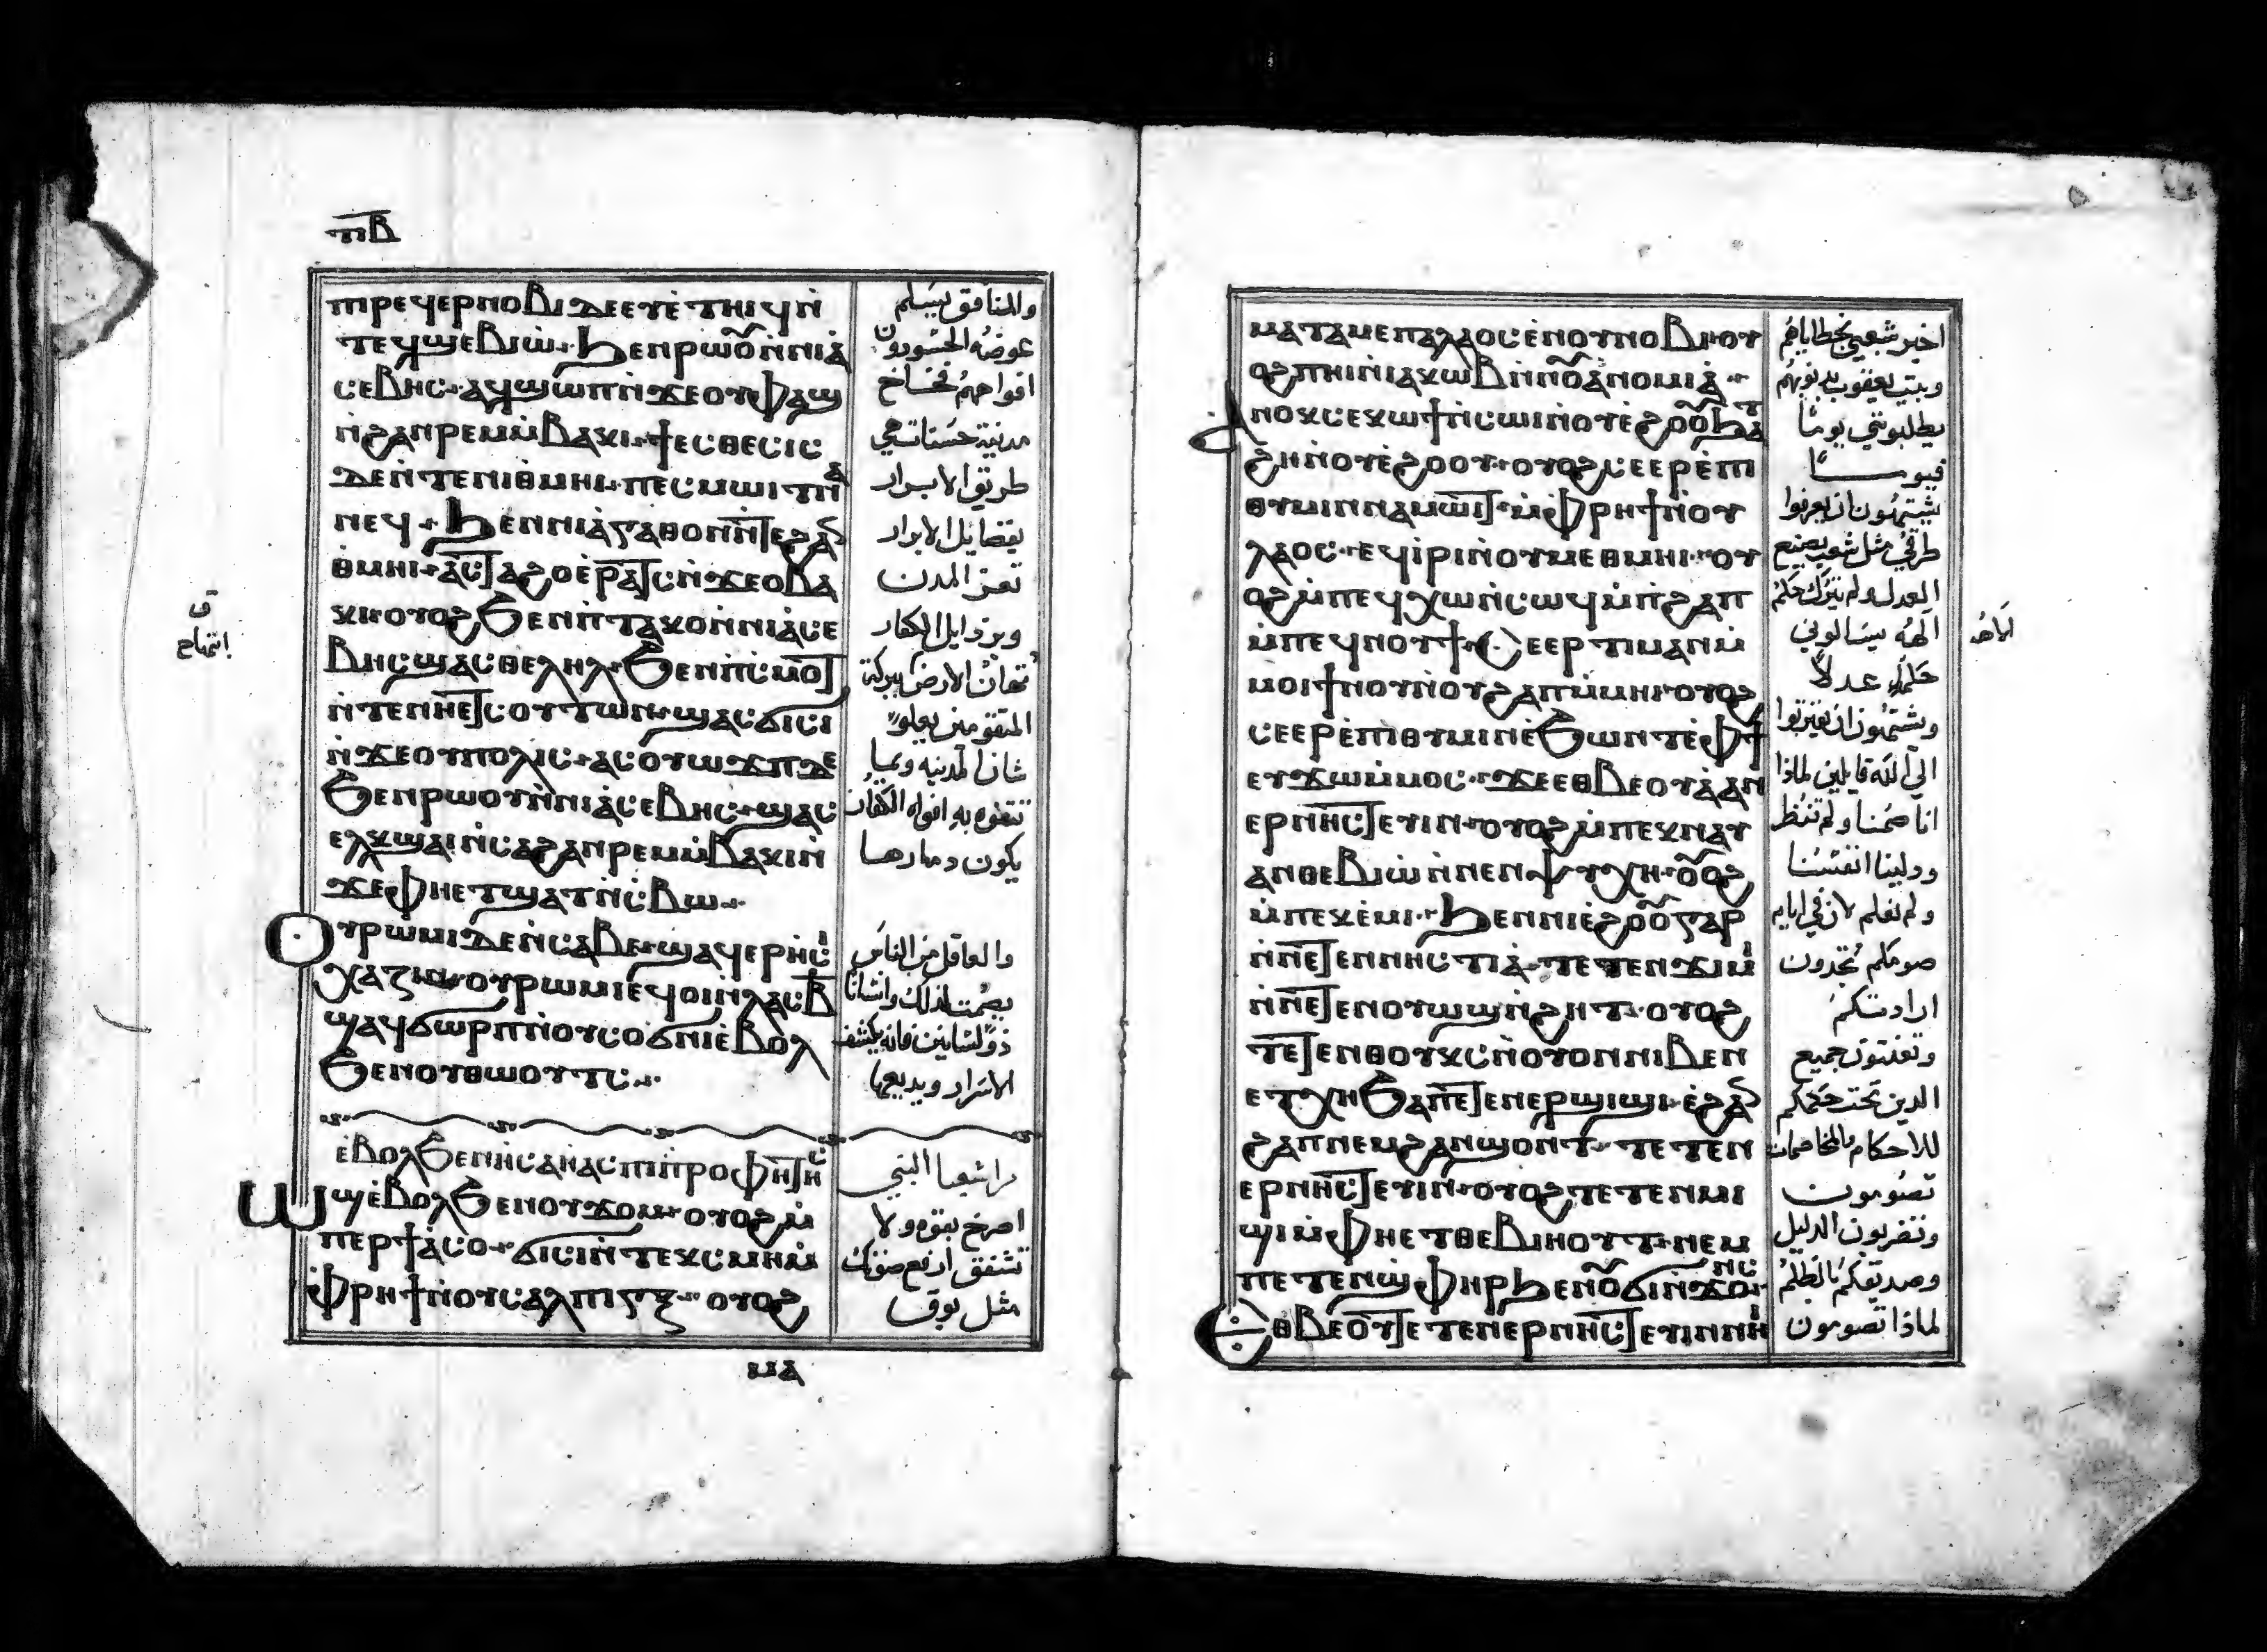 ⲡ̅ⲃ̅
ⲡⲓⲣⲉϥⲉⲣⲛⲟⲃⲓ ⲇⲉ ⲉⲩⲉ̀ⲧⲏⲓϥ ⲛ̀
ⲧⲉϥϣⲉⲃⲓⲱ̀ ϧⲉⲛ ⲣⲱⲟ̃ⲩ ⲛ̀ⲛⲓⲁ̀
ⲥⲉⲃⲏⲥ· ⲁϥϣⲱⲡⲓ ⲛ̀ϫⲉ ⲟⲩⲫⲁϣ
ⲛ̀ϩⲁⲛⲣⲉⲙⲙ̀ⲃⲁⲕⲓ· ϯⲉⲥⲑⲉⲥⲓⲥ
ⲇⲉ ⲛ̀ⲧⲉ ⲛⲓⲑⲙⲏⲓ· ⲡⲉⲥⲙⲱⲓⲧ ⲛⲁ
ⲛⲉϥ· ϧⲉⲛ ⲛⲓⲁ̀ⲅⲁⲑⲟⲛ ⲛ̀ⲧⲉ ϩⲁⲛ
ⲑⲙⲏⲓ· ⲁⲥⲧⲁϩⲟ ⲉⲣⲁⲧⲥ ⲛ̀ϫⲉ ⲟⲩⲃⲁ
ⲕⲓ· ⲟⲩⲟϩ ϧⲉⲛ ⲡ̀ⲧⲁⲕⲟ ⲛ̀ⲛⲓⲁ̀ⲥⲉ
ⲃⲏⲥ ϣⲁⲥⲑⲉⲗⲏⲗ· ϧⲉⲛ ⲡ̀ⲥⲙⲟⲩ
ⲛ̀ⲧⲉ ⲛⲏⲉⲧⲥⲟⲩⲧⲱⲛ· ϣⲁⲥϭⲓⲥⲓ
ⲛ̀ϫⲉ ⲟⲩⲡⲟⲗⲓⲥ· ⲁⲥⲟⲩⲱϫⲡ ⲇⲉ
ϧⲉⲛ ⲣⲱⲟⲩ ⲛ̀ⲛⲓⲁ̀ⲥⲉⲃⲏⲥ· ϣⲁⲥ
ⲉⲗⲕϣⲁⲓ ⲛ̀ⲥⲁ ϩⲁⲛⲣⲉⲙⲙ̀ⲃⲁⲕⲓ ⲛ̀
ϫⲉ ⲫⲏⲉⲧϣⲁⲧ ⲛ̀ⲥⲃⲱ·
ⲟⲩⲣⲱⲙⲓ ⲇⲉ ⲛ̀ⲥⲁⲃⲉ· ϣⲁϥⲉⲣⲏⲥⲩ
ⲭⲁⲍⲓⲛ· ⲟⲩⲣⲱⲙⲓ ⲉϥⲟⲓ ⲛ̀ⲗⲁⲥ ⲃ̅
ϣⲁϥϭⲱⲣⲡ ⲛ̀ⲟⲩⲥⲟϭⲛⲓ ⲉ̀ⲃⲟⲗ
ϧⲉⲛ ⲟⲩⲑⲱⲟⲩⲧⲥ·
ⲉ̀ⲃⲟⲗ ϧⲉⲛ ⲏⲥⲁⲏⲁⲥ ⲡⲓⲡ̀ⲣⲟⲫⲏⲧⲏⲥ
ⲱϣ ⲉ̀ⲃⲟⲗ ϧⲉⲛ ⲟⲩϫⲟⲙ· ⲟⲩⲟϩ ⲙ̀
ⲡⲉⲣϯⲁ̀ⲥⲟ· ϭⲓⲥⲓ ⲛ̀ⲧⲉⲕⲥⲙⲏ ⲙ̀
ⲫⲣⲏϯ ⲛ̀ⲟⲩⲥⲁⲗⲡⲓⲅⲝ· ⲟⲩⲟϩ
ⲙⲁ
والمنافق يسلم
عوضه الجسورون
افواههم فخاخ
مدنية حسنات هي
طريق الابرار
بفضايل الابرار
تعز المدن
وبرذايل الكفار
تهان الارض ببركة
المتقومين يعلوا
شان المدنيه وبما
تتفوه به افواه الكفار
يكون دمارها
والعاقل من الناس
يصمت لذلك وانسانا
ذو لسانين فانه يكشف
الاسرار ويذيعها
من اشعيا النبي
اصرخ بقوه ولا
تشفق ارفع صوتك
مثل بوق
ⲙⲁⲧⲁⲙⲉ ⲡⲁⲗⲁⲟⲥ ⲉ̀ⲛⲟⲩⲛⲟⲃⲓ· ⲟⲩ
ⲟϩ ⲡⲏⲓ ⲛ̀ⲓⲁⲕⲱⲃ ⲛ̀ⲛⲟ̃ⲩⲁ̀ⲛⲟⲙⲓⲁ̀·
ⲁⲛⲟⲕ ⲥⲉⲕⲱϯ ⲛ̀ⲥⲱⲓ ⲛ̀ⲟⲩⲉ̀ϩⲟⲟ̃ⲩ ϧⲁⲧ
ϩⲏ ⲛ̀ⲟⲩⲉ̀ϩⲟⲟⲩ· ⲟⲩⲟϩ ⲥⲉⲉⲣⲉ̀ⲡⲓ
ⲑⲩⲙⲓⲛ ⲛⲁⲙⲱⲓⲧ· ⲙ̀ⲫⲣⲏϯ ⲛ̀ⲟⲩ
ⲗⲁⲟⲥ· ⲉϥⲓ̀ⲣⲓ ⲛ̀ⲟⲩⲙⲉⲑⲙⲏⲓ· ⲟⲩ
ⲟϩ ⲙ̀ⲡⲉϥⲭⲱ ⲛ̀ⲥⲱϥ ⲙ̀ⲡ̀ϩⲁⲡ
ⲙ̀ⲡⲉϥⲛⲟⲩϯ· ⲥⲉⲉⲣⲉⲧⲓⲛ ⲙ̀
ⲙⲟⲓ ϯⲛⲟⲩ ⲛ̀ⲟⲩϩⲁⲡ ⲙ̀ⲙⲏⲓ· ⲟⲩⲟϩ
ⲥⲉⲉⲣⲉ̀ⲡⲓⲑⲩⲙⲓⲛ ⲉ̀ϧⲱⲛⲧ ⲉ̀ⲫϯ
ⲉⲩϫⲱ ⲙ̀ⲙⲟⲥ· ϫⲉ ⲉⲑⲃⲉⲟⲩ ⲁ̀ⲛ
ⲉⲣⲛⲏⲥⲧⲉⲩⲓⲛ· ⲟⲩⲟϩ ⲙ̀ⲡⲉⲕⲛⲁⲩ
ⲁⲛⲑⲉⲃⲓⲱ̀ ⲛ̀ⲛⲉⲛⲯⲩⲭⲏ· ⲟ̃ⲟϩ
ⲙ̀ⲡⲉⲕⲉ̀ⲙⲓ· ϧⲉⲛ ⲛⲓⲉ̀ϩⲟⲟ̃ⲩ ⲅⲁⲣ
ⲛ̀ⲛⲉⲧⲉⲛⲛⲏⲥⲧⲓⲁ̀· ⲧⲉⲧⲉⲛϫⲓⲙⲓ
ⲛ̀ⲛⲉⲧⲉⲛⲟⲩⲱϣ ⲛ̀ϩⲏⲧ· ⲟⲩⲟϩ
ⲧⲉⲧⲉⲛⲑⲟⲩⲕⲥ ⲛ̀ⲟⲩⲟⲛ ⲛⲓⲃⲉⲛ
ⲉⲧⲭⲏ ϧⲁ ⲡⲉⲧⲉⲛⲉⲣϣⲓϣⲓ· ⲉ̀ϩⲁⲛ
ϩⲁⲡ ⲛⲉⲙ ϩⲁⲛϣⲟⲛⲧ· ⲧⲉⲧⲉⲛ
ⲉⲣⲛⲏⲥⲧⲉⲩⲓⲛ· ⲟⲩⲟϩ ⲧⲉⲧⲉⲛⲙⲓ
ϣⲓ ⲙ̀ⲫⲏⲉⲧⲑⲉⲃⲓⲏⲟⲩⲧ· ⲛⲉⲙ
ⲡⲉⲧⲉⲛϣⲫⲏⲣ ϧⲉⲛ ⲟ̃ⲩϭⲓⲛϫⲟⲛⲥ
ⲉⲑⲃⲉⲟⲩ ⲧⲉⲧⲉⲛⲉⲣⲛⲏⲥⲧⲉⲩⲓⲛ ⲛⲏⲓ
اخبر شعبي بخطاياهم
وبيت يعقوب بذنوبهم
يطلبونني يومًا
فيومًا
يشتهون ان يعرفوا
طرقي مثل شعب يصنع
العدل ولم يترك حكم
الهه يسالوني
حكمًا عدلًا
ويشتهون ان يقتربوا
الي الله قايلين لماذا
انا صمنا ولم تنظر
وذلينا انفسنا
ولم تعلم لان في ايام
صومكم تجدون
ارادتكم
وتعنتون جميع
الذين تحت حكمكم
للاحكام بالمخاصمات
تصومون
وتضربون الذليل
وصديقكم بالظلم
لماذا تصومون